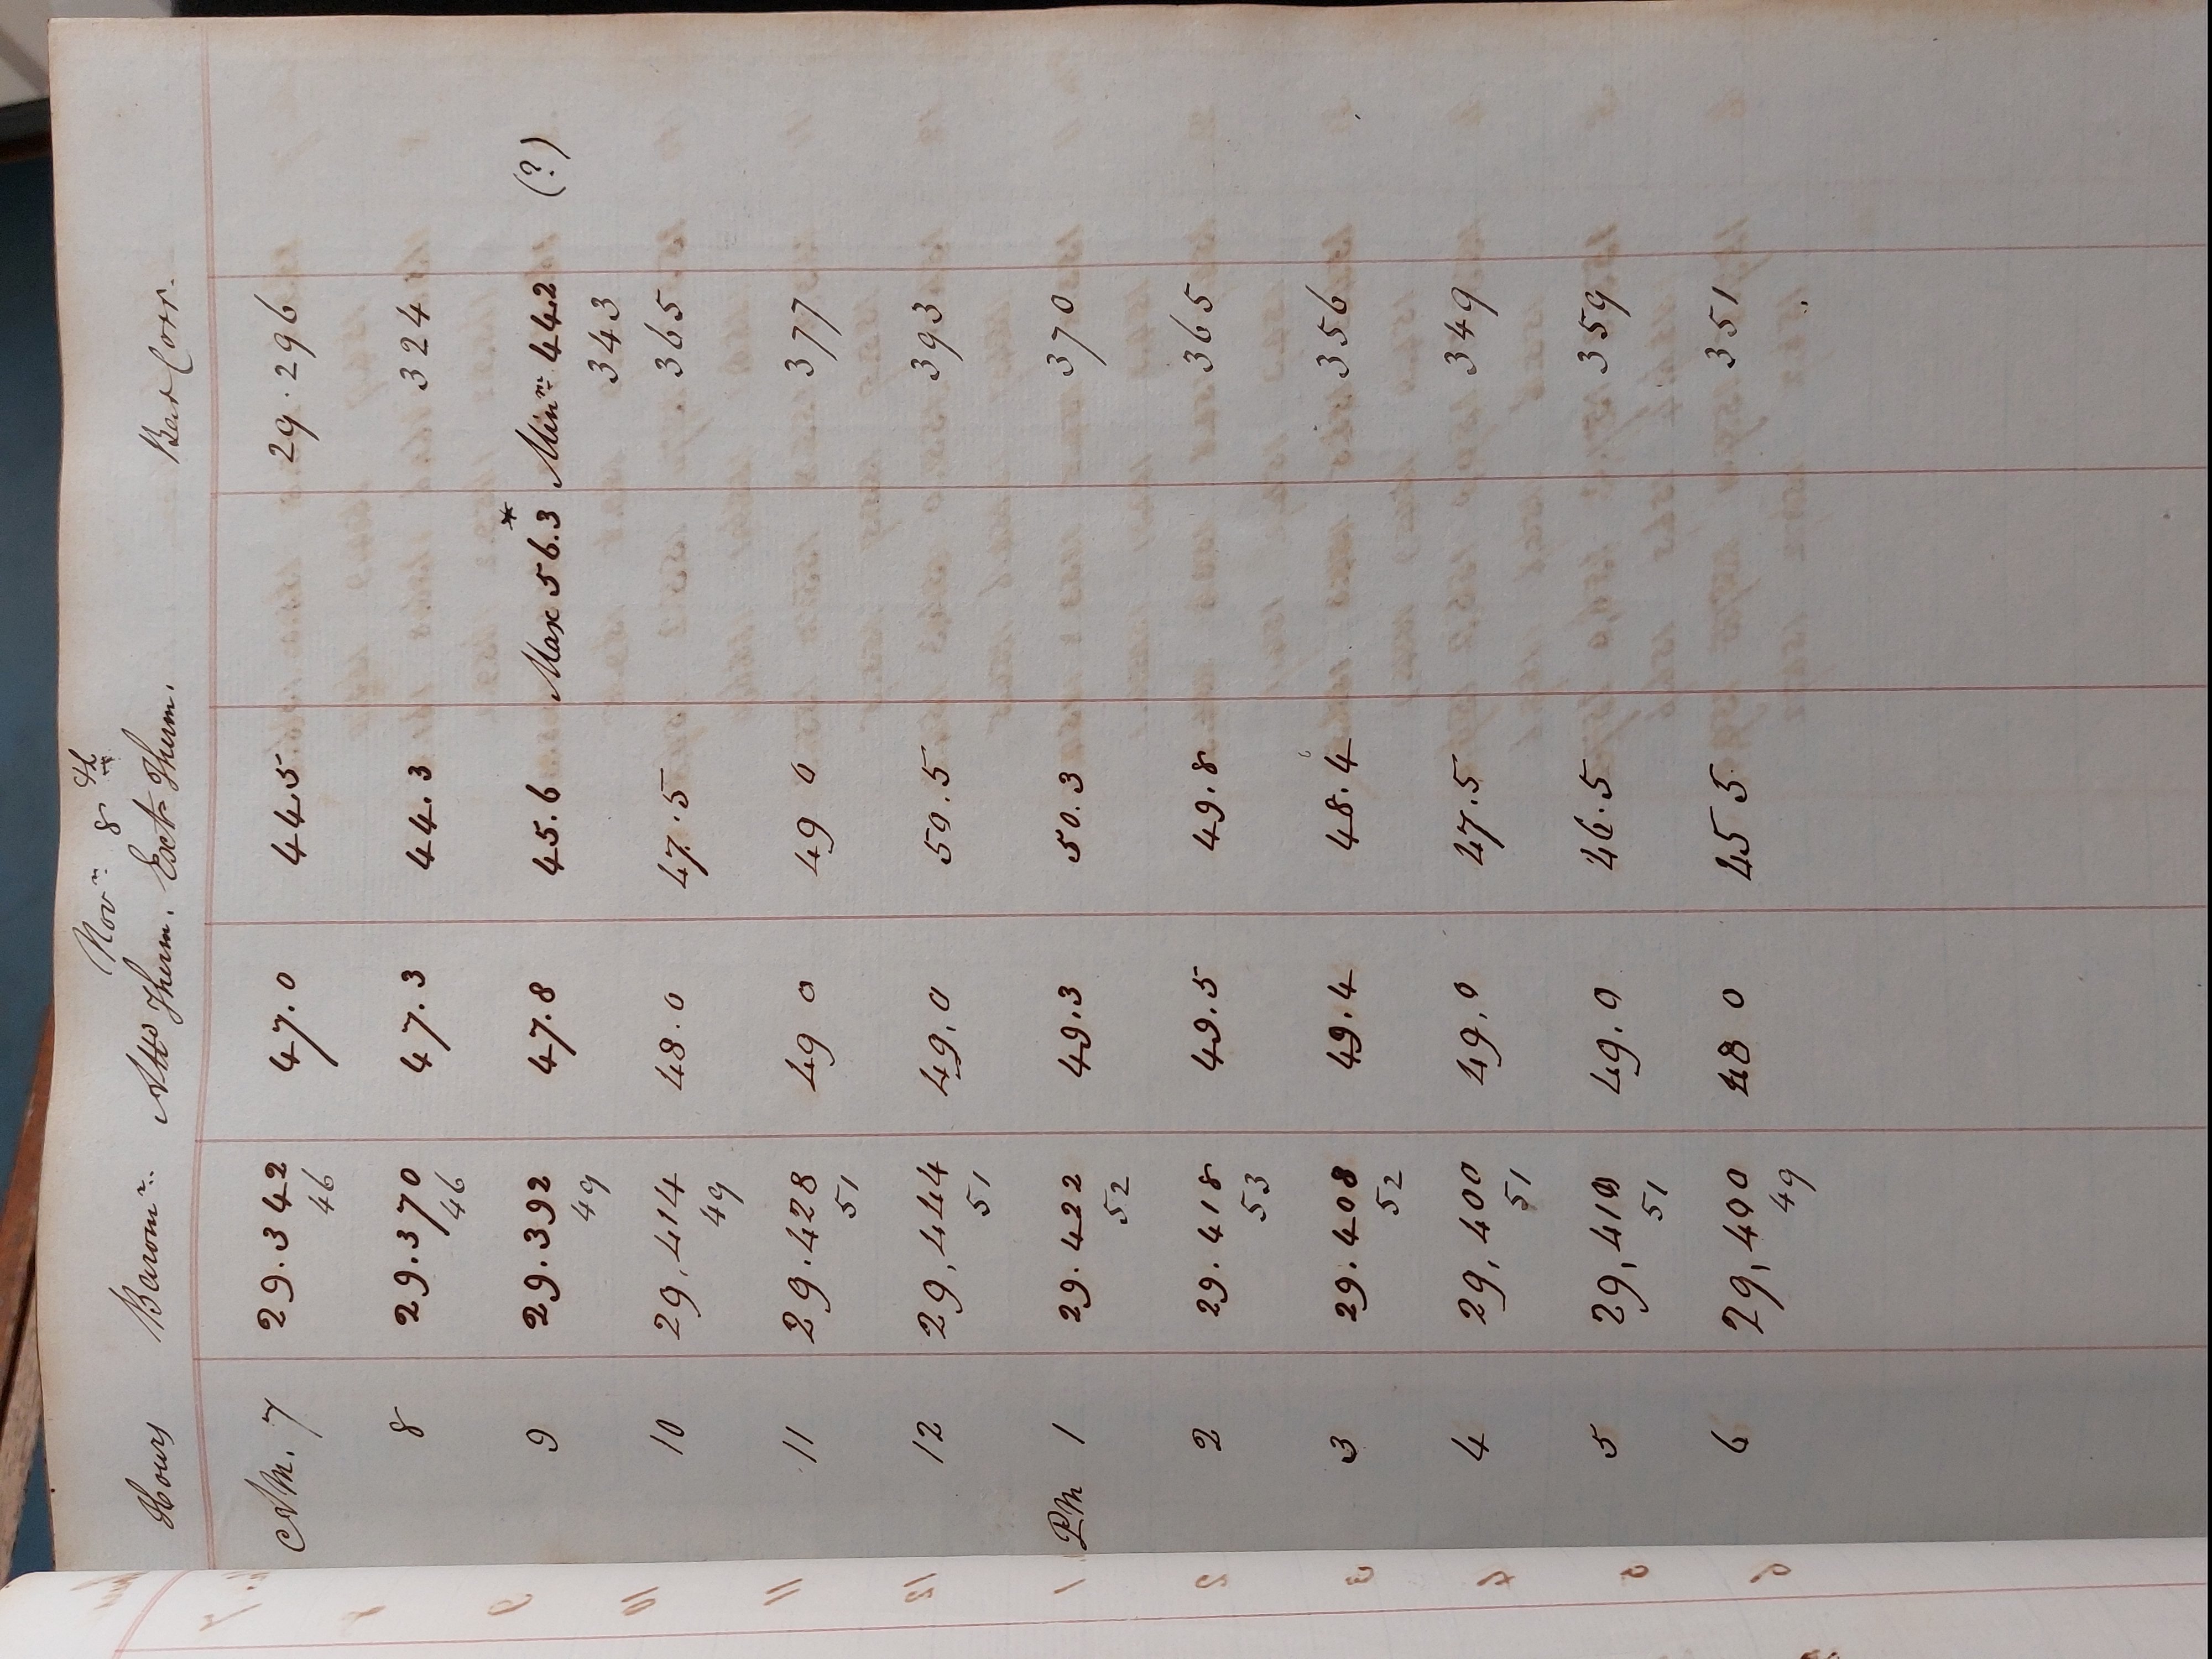 Novr 8th
Hours Baromr. Attd Therm. Extl Therm. Bar Corr.
AM. 7 29.342 47.0 44.5 29.296
46
8 29.370 47.3 44.3 324
46
9 29.392 47.8 45.6 Max 56.3* Minm 44.2 (?)
49 343
10 29,414 48.0 47.5 365
49
11 29.428 49 0 49 0 377
51
12 29,444 49,0 50.5 393
51
PM 1 29.422 49.3 50.3 370
52
2 29.418 49.5 49.8 365
53
3 29.408 49.4 48.4 356
52
4 29,400 49,0 47.5 349
51
5 29,410 49.0 46.5 359
51
6 29,400 48 0 45 5 351
49